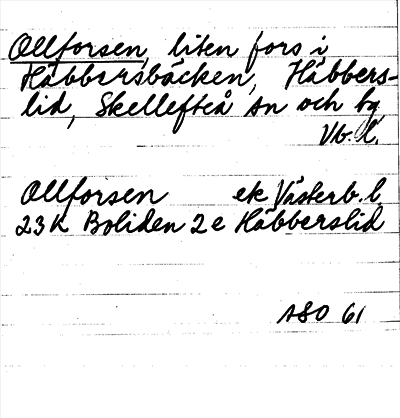 Ollforsen, liten fors i
Häbbersbäcken, Häbbers-
lid, Skellefteå sn och by
Vb. l.
Ollforsen ek Västerb. l.
23K Boliden 2e Häbberslid
ASO 61